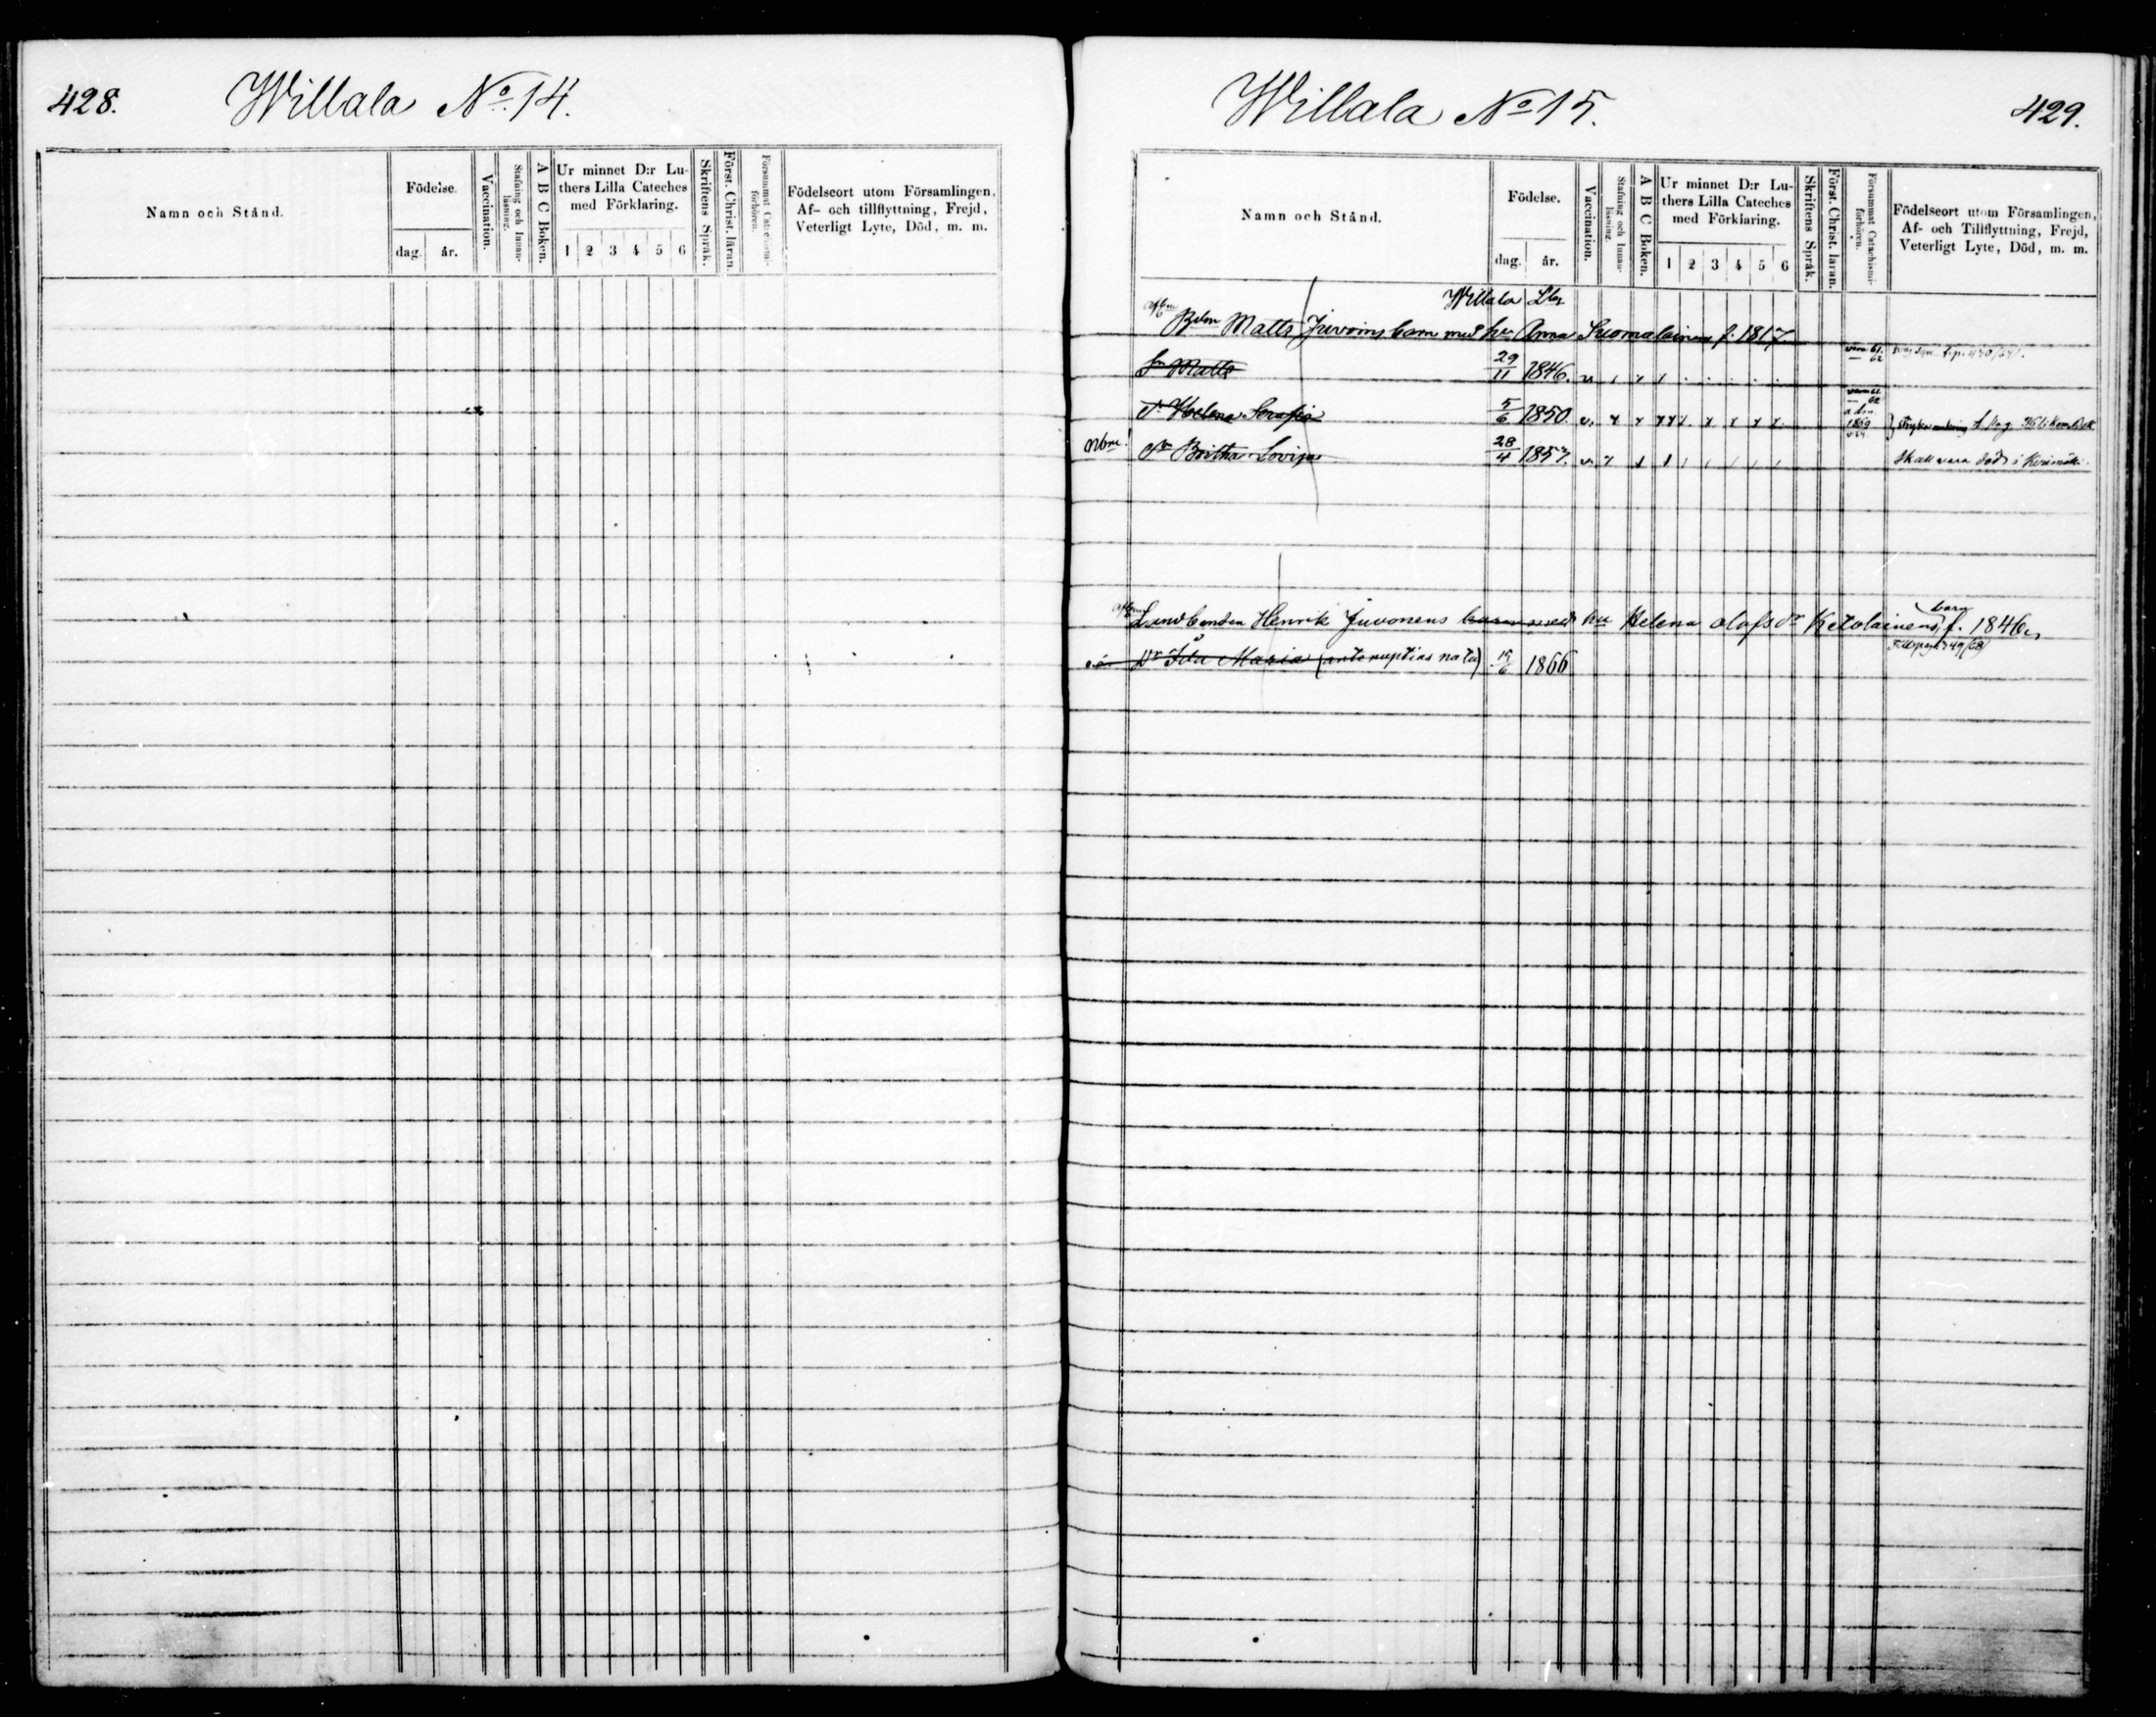 428. Willala No. 14.
Namn och Stånd.
Födelse.
dag. år.
Vaccination.
Stafning och Innan-läsning.
A B C Boken.
Ur minnet D:r Lu-
thers Lilla Cateches
med Förklaring.
1 2 3 4 5 6
Skriftens Språk.
Först. Christ. läran.
Försummat Catechismi-förhören.
Födelseort utom Församlingen,
Af- och tillflyttning, Frejd,
Veterligt Lyte, Död, m. m.
Willala No 15. 429.
Namn och Stånd.
Födelse.
dag. år.
Vaccination.
Stafning och Innan-läsning.
A B C Boken.
Ur minnet D:r Lu-
thers Lilla Cateches
med Förklaring.
1 2 3 4 5 6
Skriftens Språk.
Först. Christ. läran.
Försummat Catechismi-förhören.
Födelseort utom Församlingen,
Af- och Tillflyttning, Frejd,
Veterligt Lyte, Död, m. m.
Willala
Matts Juvoins barn med hu Anna Suomalainen f. 1817
Sn Matts 29/11 1846.
Dr Helena Serafia 5/6 1850. 1869
Dr Britha Lovisa 28/4 1857. Skall vara död i Kerimäki.
Henrik Juvonens hu Helena Olofsdr Ketolainens barn f. 1846
Dr Ida Maria (ante nuptias nata) 15/6 1866